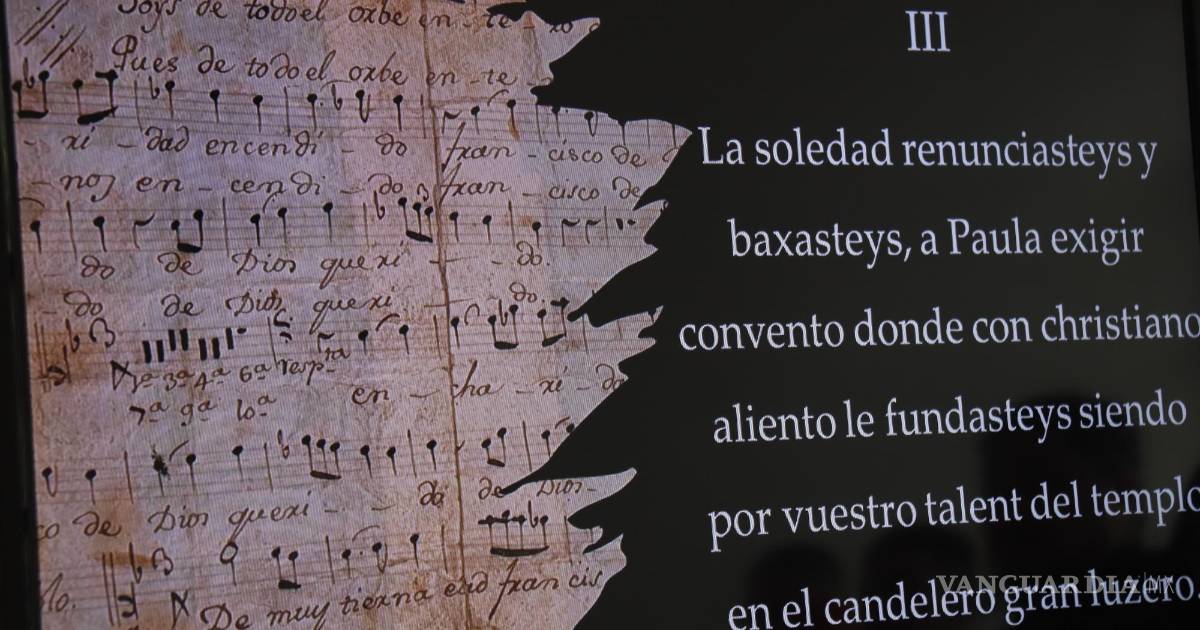 Soys de todo el orbe en - te - ro
Pues de todo el orbe en - te -
- xi - dad encendi - do fran - cisco de
- nos en - cendi - do fran - cisco de
do de Dios quexi - - do.
do de Dios quexi - do.
3ª 4ª 6ª resp
en - cha - xi - da
7ª 9ª 10ª
da de Dios -
co de Dios quexi - -
De muy tierna edad fran cis
III
La soledad renunciasteys y
baxasteys, a Paula exigir
convento donde con christiano
aliento le fundasteys siendo
por vuestro talent del templo
en el candelero gran luzero.
VANGUARDIA|MX